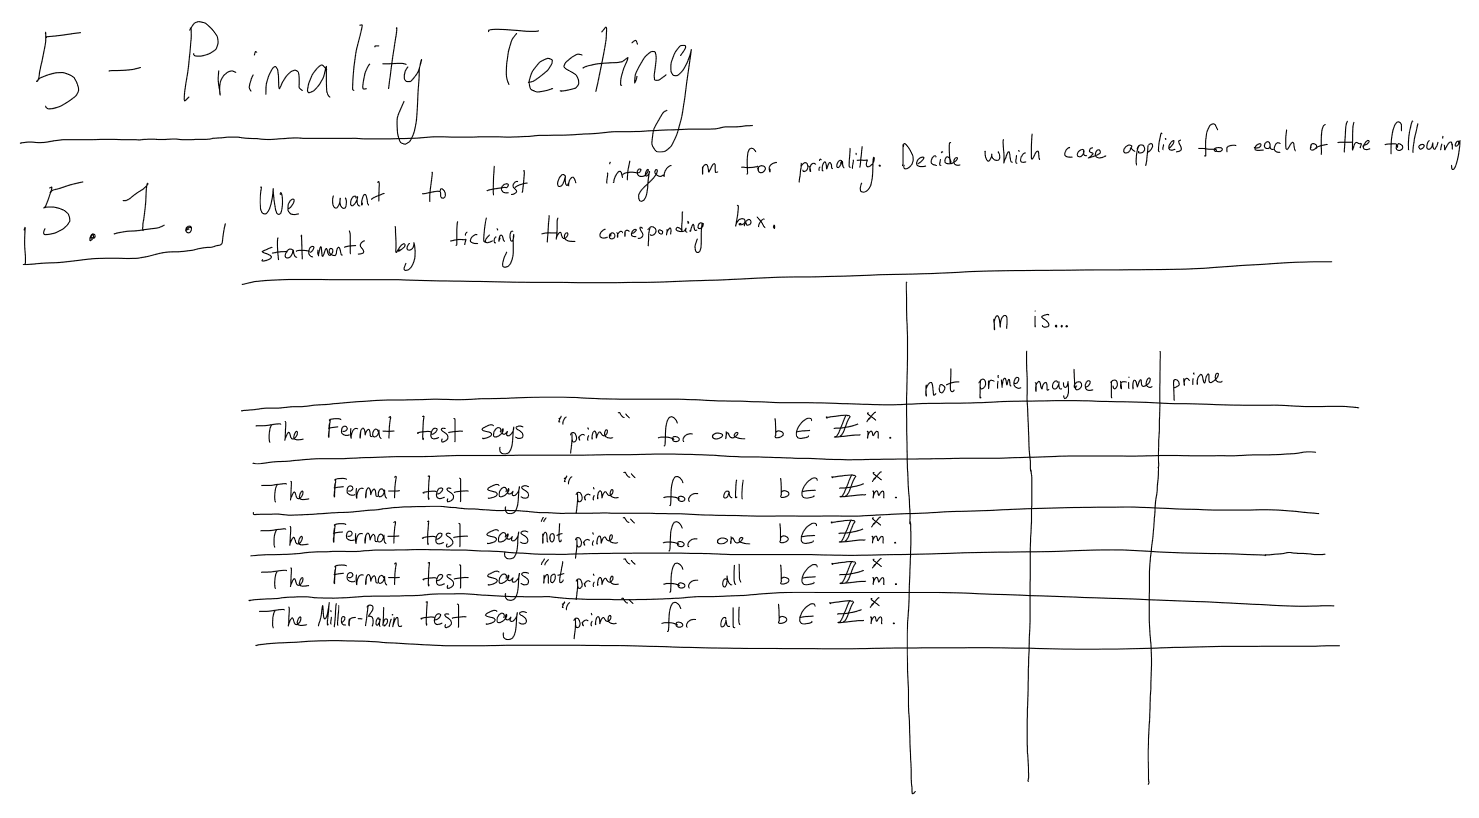 5 - Primality Testing
5.1. We want to test an integer m for primality. Decide which case applies for each of the following
statements by ticking the corresponding box.
m is...
not prime maybe prime prime
The Fermat test says "prime" for one b ∈ ℤₘˣ.
The Fermat test says "prime" for all b ∈ ℤₘˣ.
The Fermat test says "not prime" for one b ∈ ℤₘˣ.
The Fermat test says "not prime" for all b ∈ ℤₘˣ.
The Miller-Rabin test says "prime" for all b ∈ ℤₘˣ.